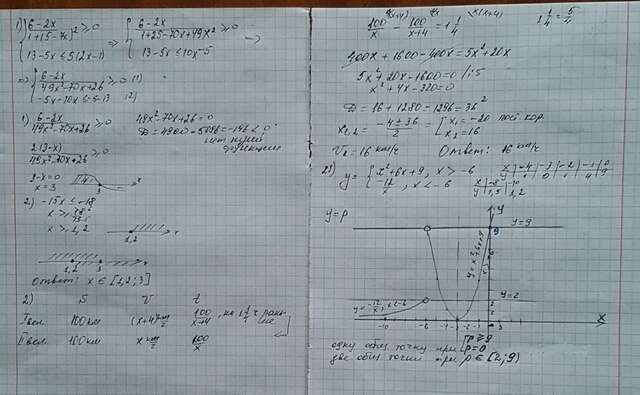 1) { 6-2x / 1+(5-7x)² ≥ 0
13-5x ≤ 5(2x-1)
=> { 6-2x / 1+25-70x+49x² ≥ 0
13-5x ≤ 10x-5 =>
=> { 6-2x / 49x²-70x+26 ≥ 0 (1)
-5x-10x ≤ -5-13 (2)
1) 6-2x / 49x²-70x+26 ≥ 0
49x²-70x+26=0
D = 4900-5096=-196 < 0
нет нулей
функции
2(3-x) / 49x²-70x+26 ≥ 0
3-x=0
x=3
3 x
2) -15x ≤ -18
x ≥ 18/15
x ≥ 1,2
1,2 x
1,2 3 x
Ответ: x ∈ [1,2; 3]
2) S V t
I вел. 100 км (x+4) км/ч 100/x+4 , на 1 1/4 ч рань-
ше
II вел. 100 км x км/ч 100/x
100/x - 100/x+4 = 1 1/4
1 1/4 = 5/4
400x + 1600 - 400x = 5x² + 20x
5x² + 20x - 1600 = 0 /:5
x² + 4x - 320 = 0
D = 16 + 1280 = 1296 = 36²
x1,2 = -4 ± 36 / 2 = [ x1 = -20 пост. кор.
x2 = 16
V2 = 16 км/ч Ответ: 16 км/ч
y = { x² + 6x + 9, x > -6
-12/x , x < -6
x | -4 | -3 | -2 | -1 | 0
y | 1 | 0 | 1 | 4 | 9
x | -8 | -10
y | 1,5 | 1,2
y
y=p
y=9
9
y=x²+6x+9
y=-12/x, x<-6
y=2
-10 -6 -3 -2 -1 x
одну общ. точку при [ p ≥ 9
p=0
две общ. точки при p ∈ [2; 9)